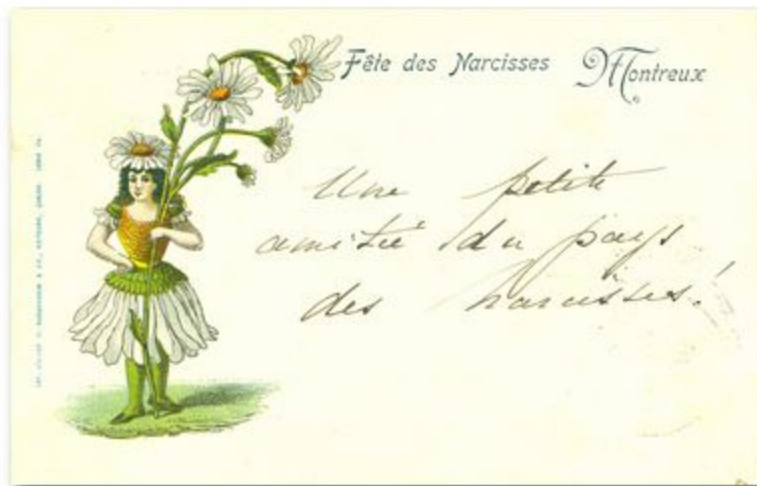 Fête des Narcisses Montreux
Une petite
amitié du pays
des narcisses!